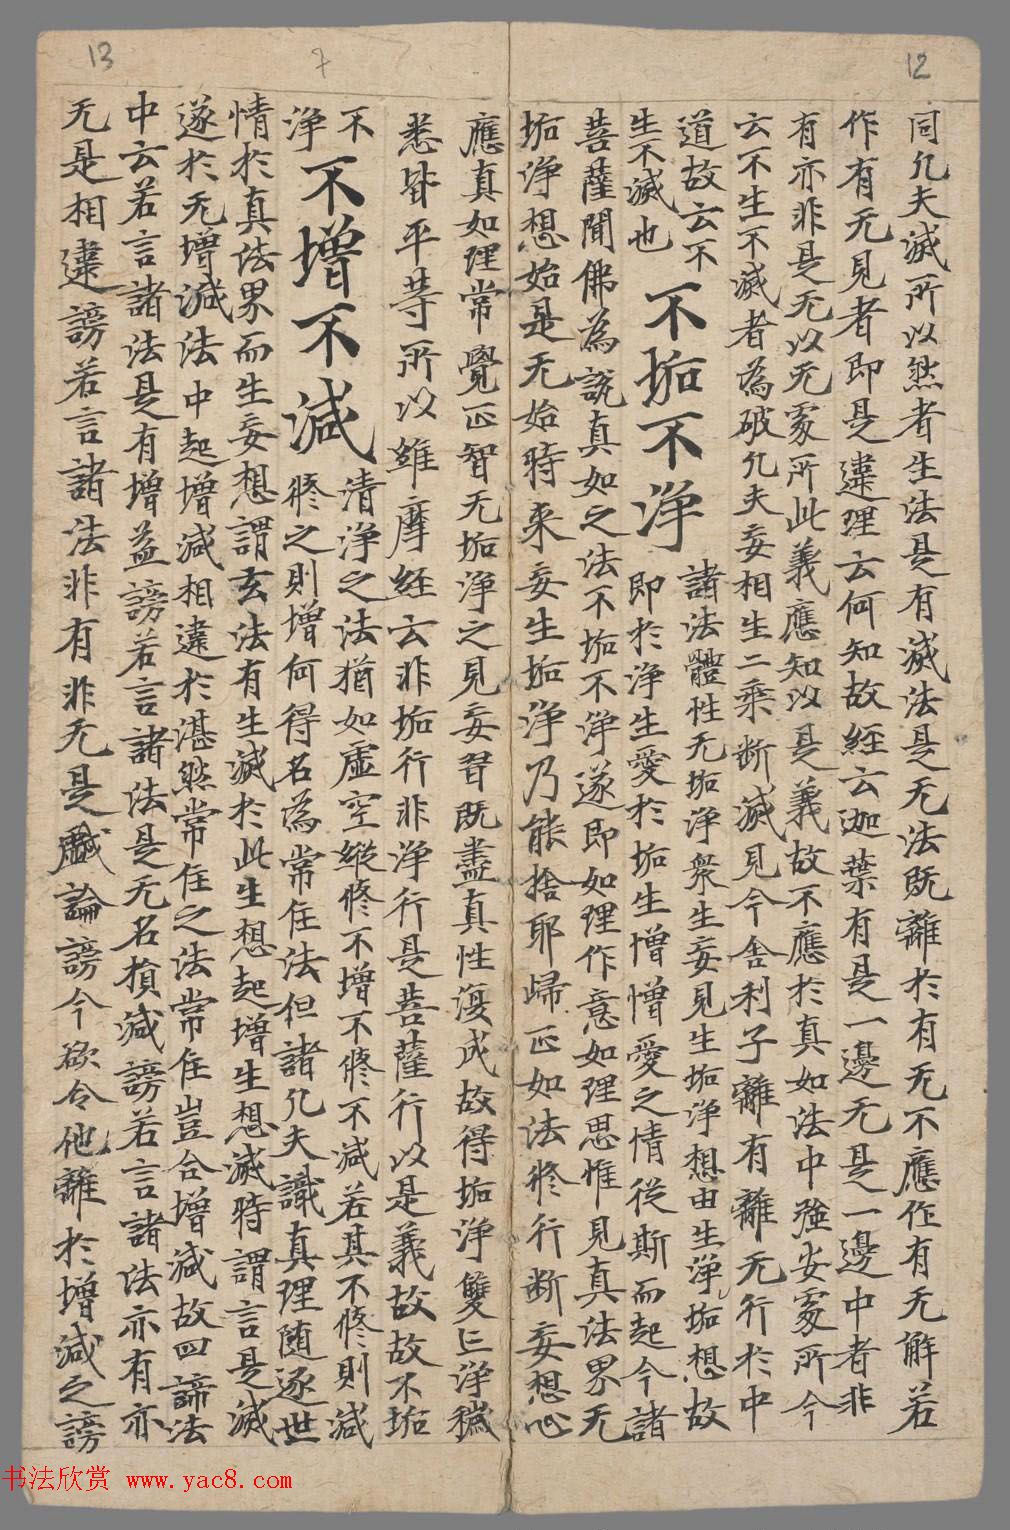 12
同凡夫滅所以然者生法是有滅法是无法既離於有无不應作有无解若
作有无見者即是違理云何知故經云迦葉有是一邊无是一邊中者非
有亦非是无以无處所此義應知以是義故不應於真如法中強安處所今
云不生不滅者為破凡夫妄相生二乘断滅見今舍利子離有離无行於中
道故云不
生不滅也
不垢不淨
諸法體性无垢淨衆生妄見生垢淨想由生淨垢想故
即於淨生愛於垢生憎憎愛之情從斯而起今諸
菩薩聞佛為說真如之法不垢不淨遂即如理作意如理思惟見真法界无
垢淨想始是无始時来妄生垢淨乃能捨耶歸正如法修行断妄想心
應真如理常覺正智无垢淨之見妄習既盡真性復成故得垢淨雙亡淨穢
悉皆平等所以維摩經云非垢行非淨行是菩薩行以是義故故不垢
7
不
淨
不增不減
清淨之法猶如虛空縱修不增不修不減若其不修則減
修之則增何得名為常住法但諸凡夫識真理随逐世
情於真法界而生妄想謂玄法有生滅於此生想起增生想滅時謂言是滅
遂於无增減法中起增減相違於湛然常住之法常住豈合增減故四諦法
中云若言諸法是有增益謗若言諸法是无名損減謗若言諸法亦有亦
无是相違謗若言諸法非有非无是戲論謗今欲令他離於增減之謗
13
书法欣赏 www.yac8.com